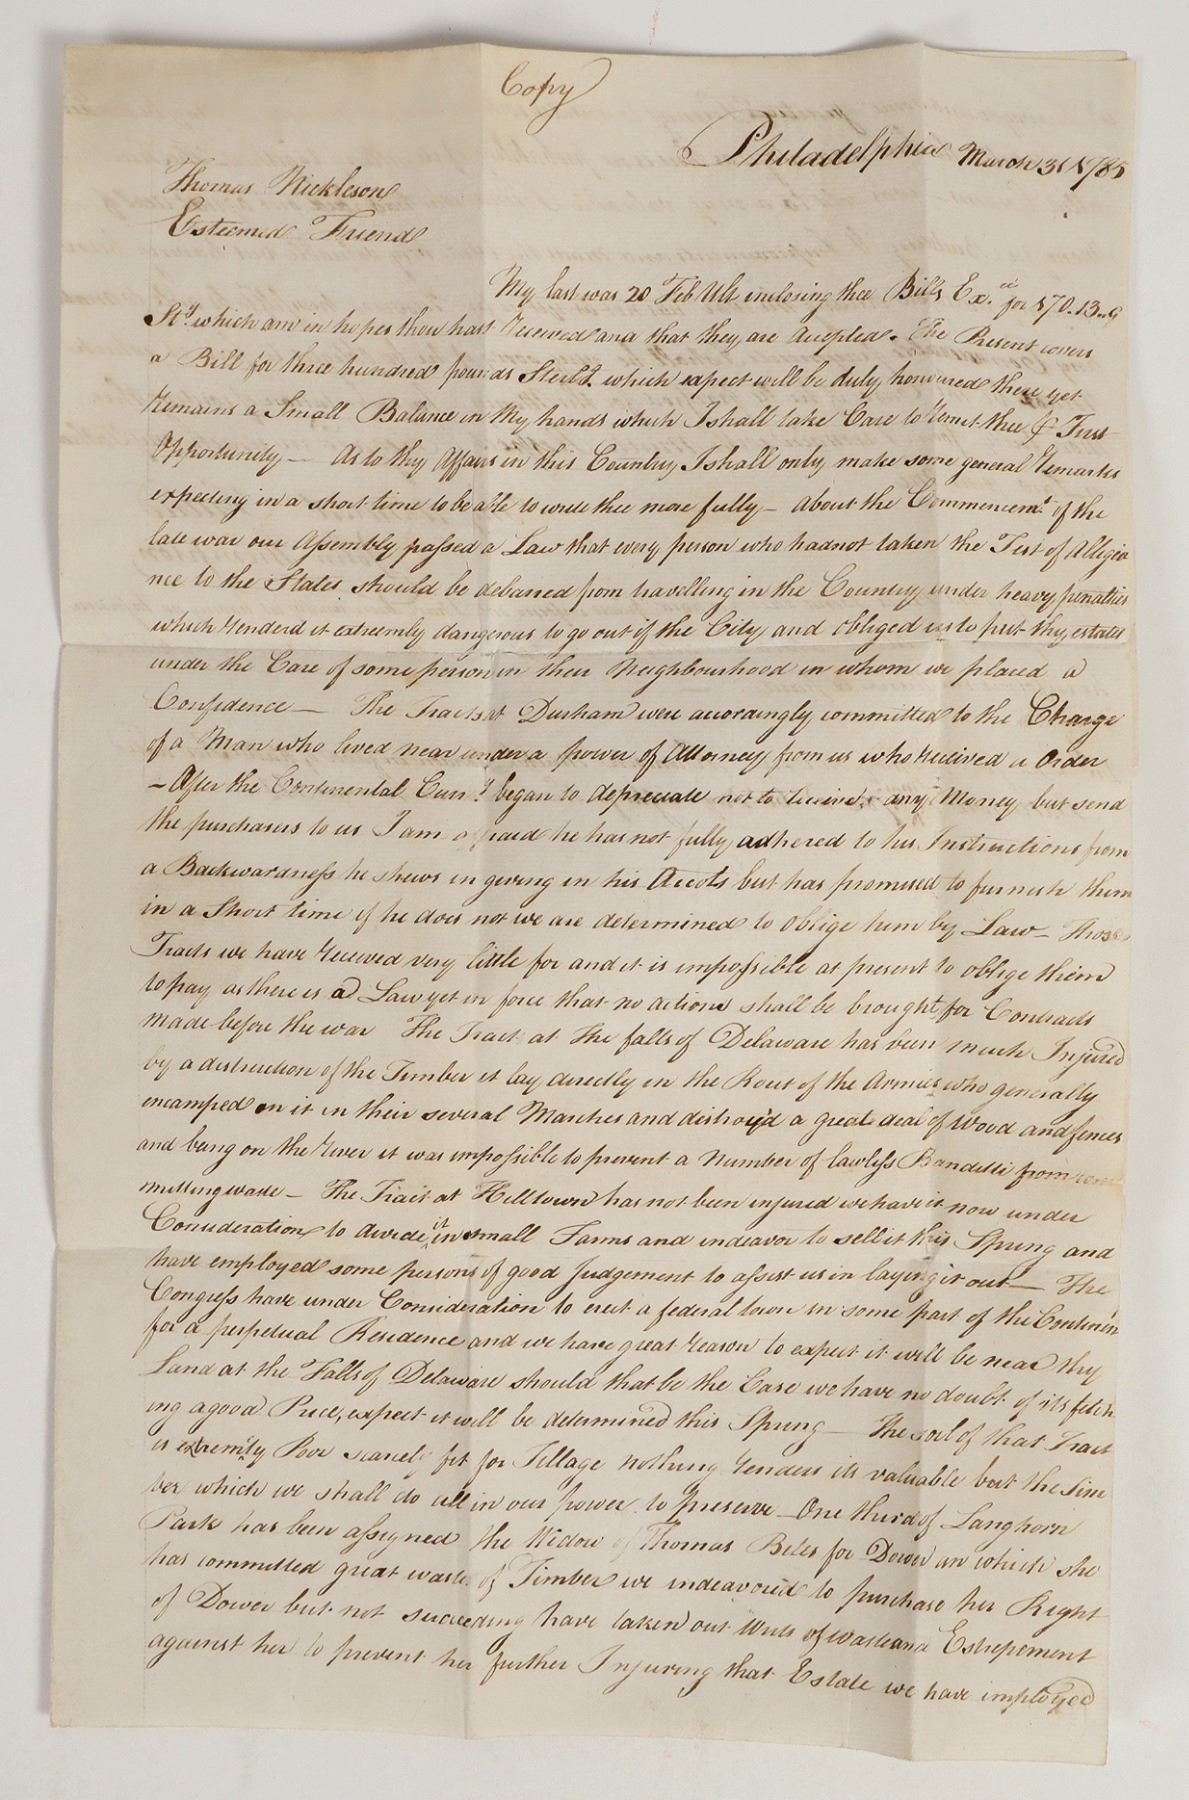 Copy
Philadelphia March 31 1785
Thomas Nickleson
Esteemed Friend
My last was 20 Feb Ult inclosing thee Bills Ex.ce for 170..13..9
Stg which am in hopes thou hast received and that they are Accepted. The Present covers
a Bill for three hundred pounds Sterlg which expect will be duly honoured there yet
remains a Small Balance in My hands which I shall take Care to remit thee ⅌ First
Opportunity — As to thy Affairs in this Country I shall only make some general remarks
expecting in a short time to be able to write thee more fully — about the Commencemt of the
late war our Assembly passed a Law that every person who had not taken the Test of Allegia
nce to the States should be debarred from travelling in the Country under heavy penalties
which renderd it extreemly dangerous to go out of the City and obliged us to put thy estates
under the Care of some person in their Neighbourhood in whom we placed a
Confidence — The Tracts at Durham were accordingly committed to the Charge
of a Man who lived near under a power of Attorney from us who received a Order
— After the Continental Curry began to depreciate not to receive any Money but send
the purchasers to us I am afraid he has not fully adhered to his Instructions from
a Backwardness he shews in giving in his Accots but has promised to furnish them
in a Short time if he does not we are determined to oblige him by Law — Those
Tracts we have received very little for and it is impossible at present to oblige them
to pay as there is a Law yet in force that no actions shall be brought for Contracts
made before the war The Tract at the falls of Delaware has been much Injured
by a distruction of the Timber it lay directly in the Rout of the Armies who generally
encamped on it in their several Marches and distroy'd a great deal of Wood and fences
and being on the river it was impossible to prevent a Number of lawless Bandetti from com
mitting waste — The Tract at Hilltown has not been injured we have it now under
Consideration to divide it in small Farms and indeavor to sell it this Spring and
have employed some persons of good Judgement to assist us in laying it out — The
Congress have under Consideration to erect a federal town in some part of the Continen
for a perpetual Residence and we have great reason to expect it will be near thy
Land at the Falls of Delaware should that be the Case we have no doubt of its fetch
ing a good Price, expect it will be determined this Spring — The soil of that Tract
is extremly Poor scarcely fit for Tillage nothing renders its valuable but the Tim
ber which we shall do all in our power to preserve — One third of Langhorn
Park has been assigned the Widow of Thomas Biles for Dower on which she
has committed great waste of Timber we indeavoured to purchase her Right
of Dower but not succeeding have taken out Writs of waste and Estrepement
against her to prevent her further Injuring that Estate we have imployed